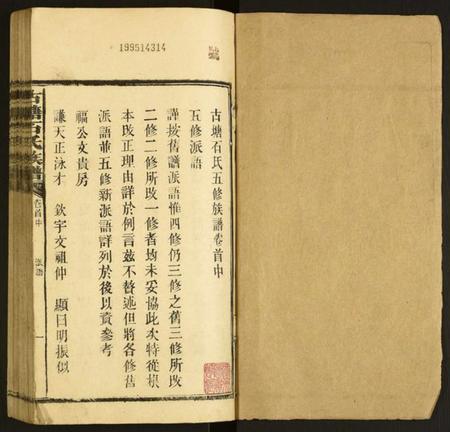 199514314
古塘石氏五修族譜卷首中
五修派語
謹按舊譜派語惟四修仍三修之舊三修所改
二修二修所改一修者均未妥協此次特從根
本改正理由詳於例言茲不贅述但將各修舊
派語並五修新派語詳列於後以資參考
福公文貴房
謙天正泳才 欽宇文祖仲 顯日明振似
古塘石氏族譜
卷首中
派語
一